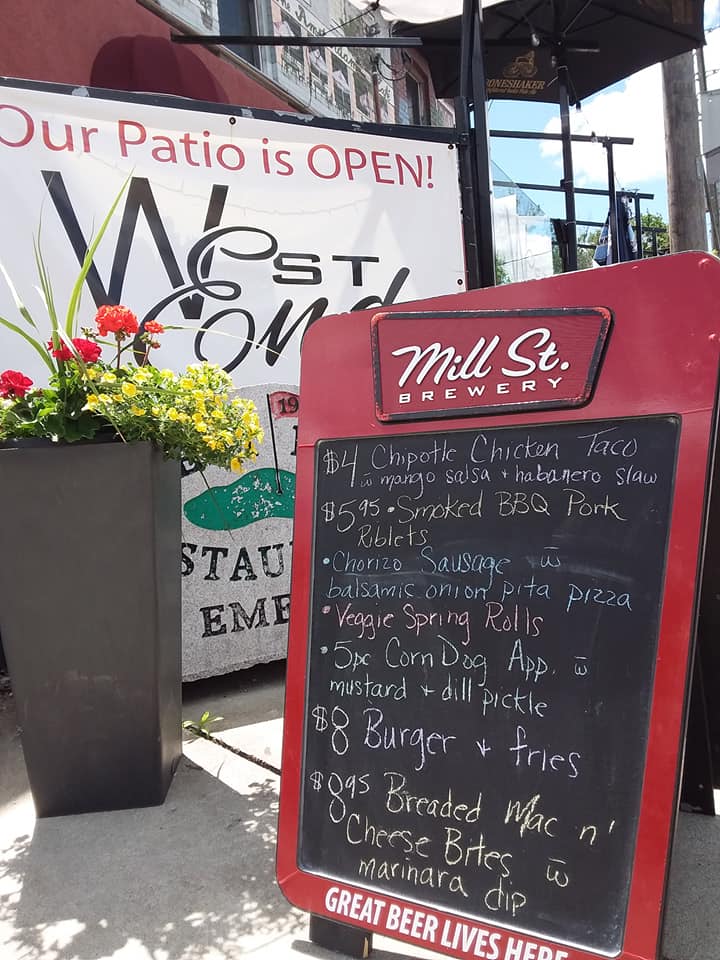 Our Patio is OPEN!
West
End
19
STAU
EME
ONESHAKER
Mill St.
BREWERY
$4 Chipotle Chicken Taco
w̄ mango salsa + habanero slaw
$5.95 • Smoked BBQ Pork
Riblets
• Chorizo Sausage w̄
balsamic onion pita pizza
• Veggie Spring Rolls
• 5pc Corn Dog App. w̄
mustard + dill pickle
$8 Burger + fries
$8.95 Breaded Mac n'
Cheese Bites w̄
marinara dip
GREAT BEER LIVES HERE